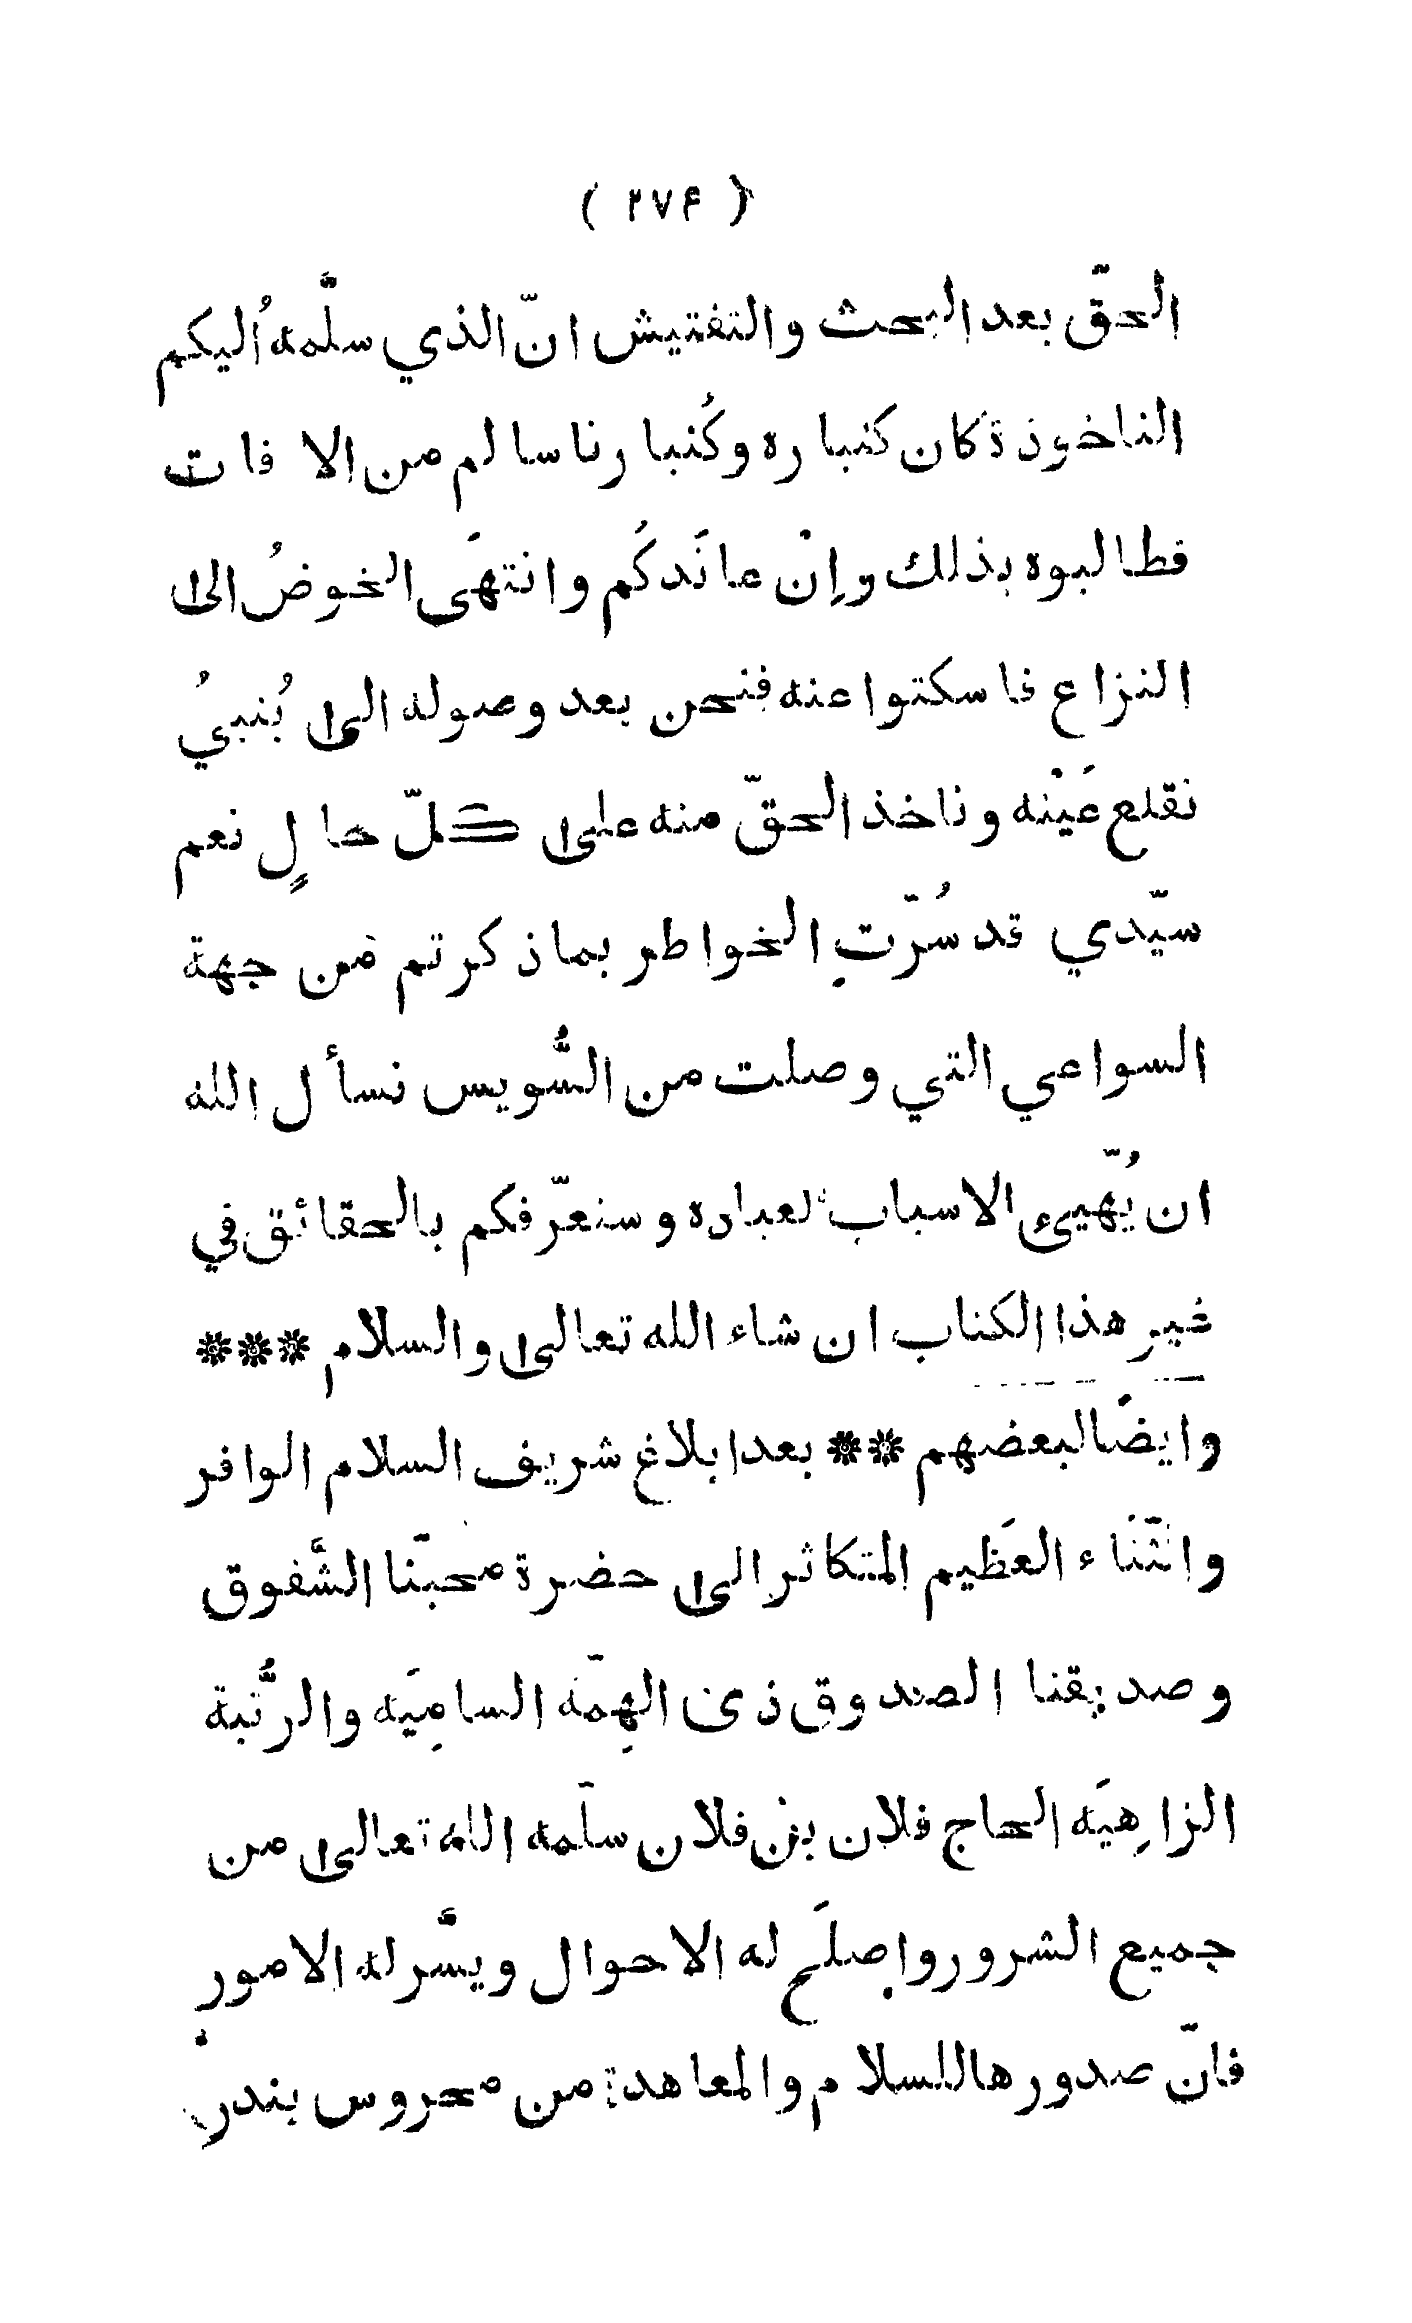 ( ٢٧۶ )
الحقّ بعد البحث والتفتيش انّ الذي سلَّمهُ اليكم
الناخوذة كان كنباره وكُنبارنا سالم من الافات
فطالبوه بذلك وإنْ عانَدكُم وانتهَى الخوضُ الى
النزاع فاسكتوا عنه فنحن بعد وصوله الى بُنبيُ
نقلع عَيْنه وناخذ الحقّ منه على كلّ حالٍ نعم
سيّدي قد سُرّتِ الخواطر بماذكرتم من جهة
السواعي التي وصلت من السُّويس نسأل الله
ان يُهّيئ الاسباب لعباده وسنعرّفكم بالحقائق في
غير هذا الكتاب ان شاء الله تعالى والسلام ***
وايضًا لبعضهم ** بعد ابلاغ شريف السلام الوافر
والثّناء العَظيم المتكاثر الى حضرة محبّنا الشَّفوق
وصديقنا الصدوق ذى الهِمّه الساميَه والرُّتبة
الزاهِيَه الحاج فلان بن فلان سلّمه الله تعالى من
جميع الشرور واصلَح له الاحوال ويسَّر له الامور
فانّ صدورها للسلام والمعاهدة من محروس بندر